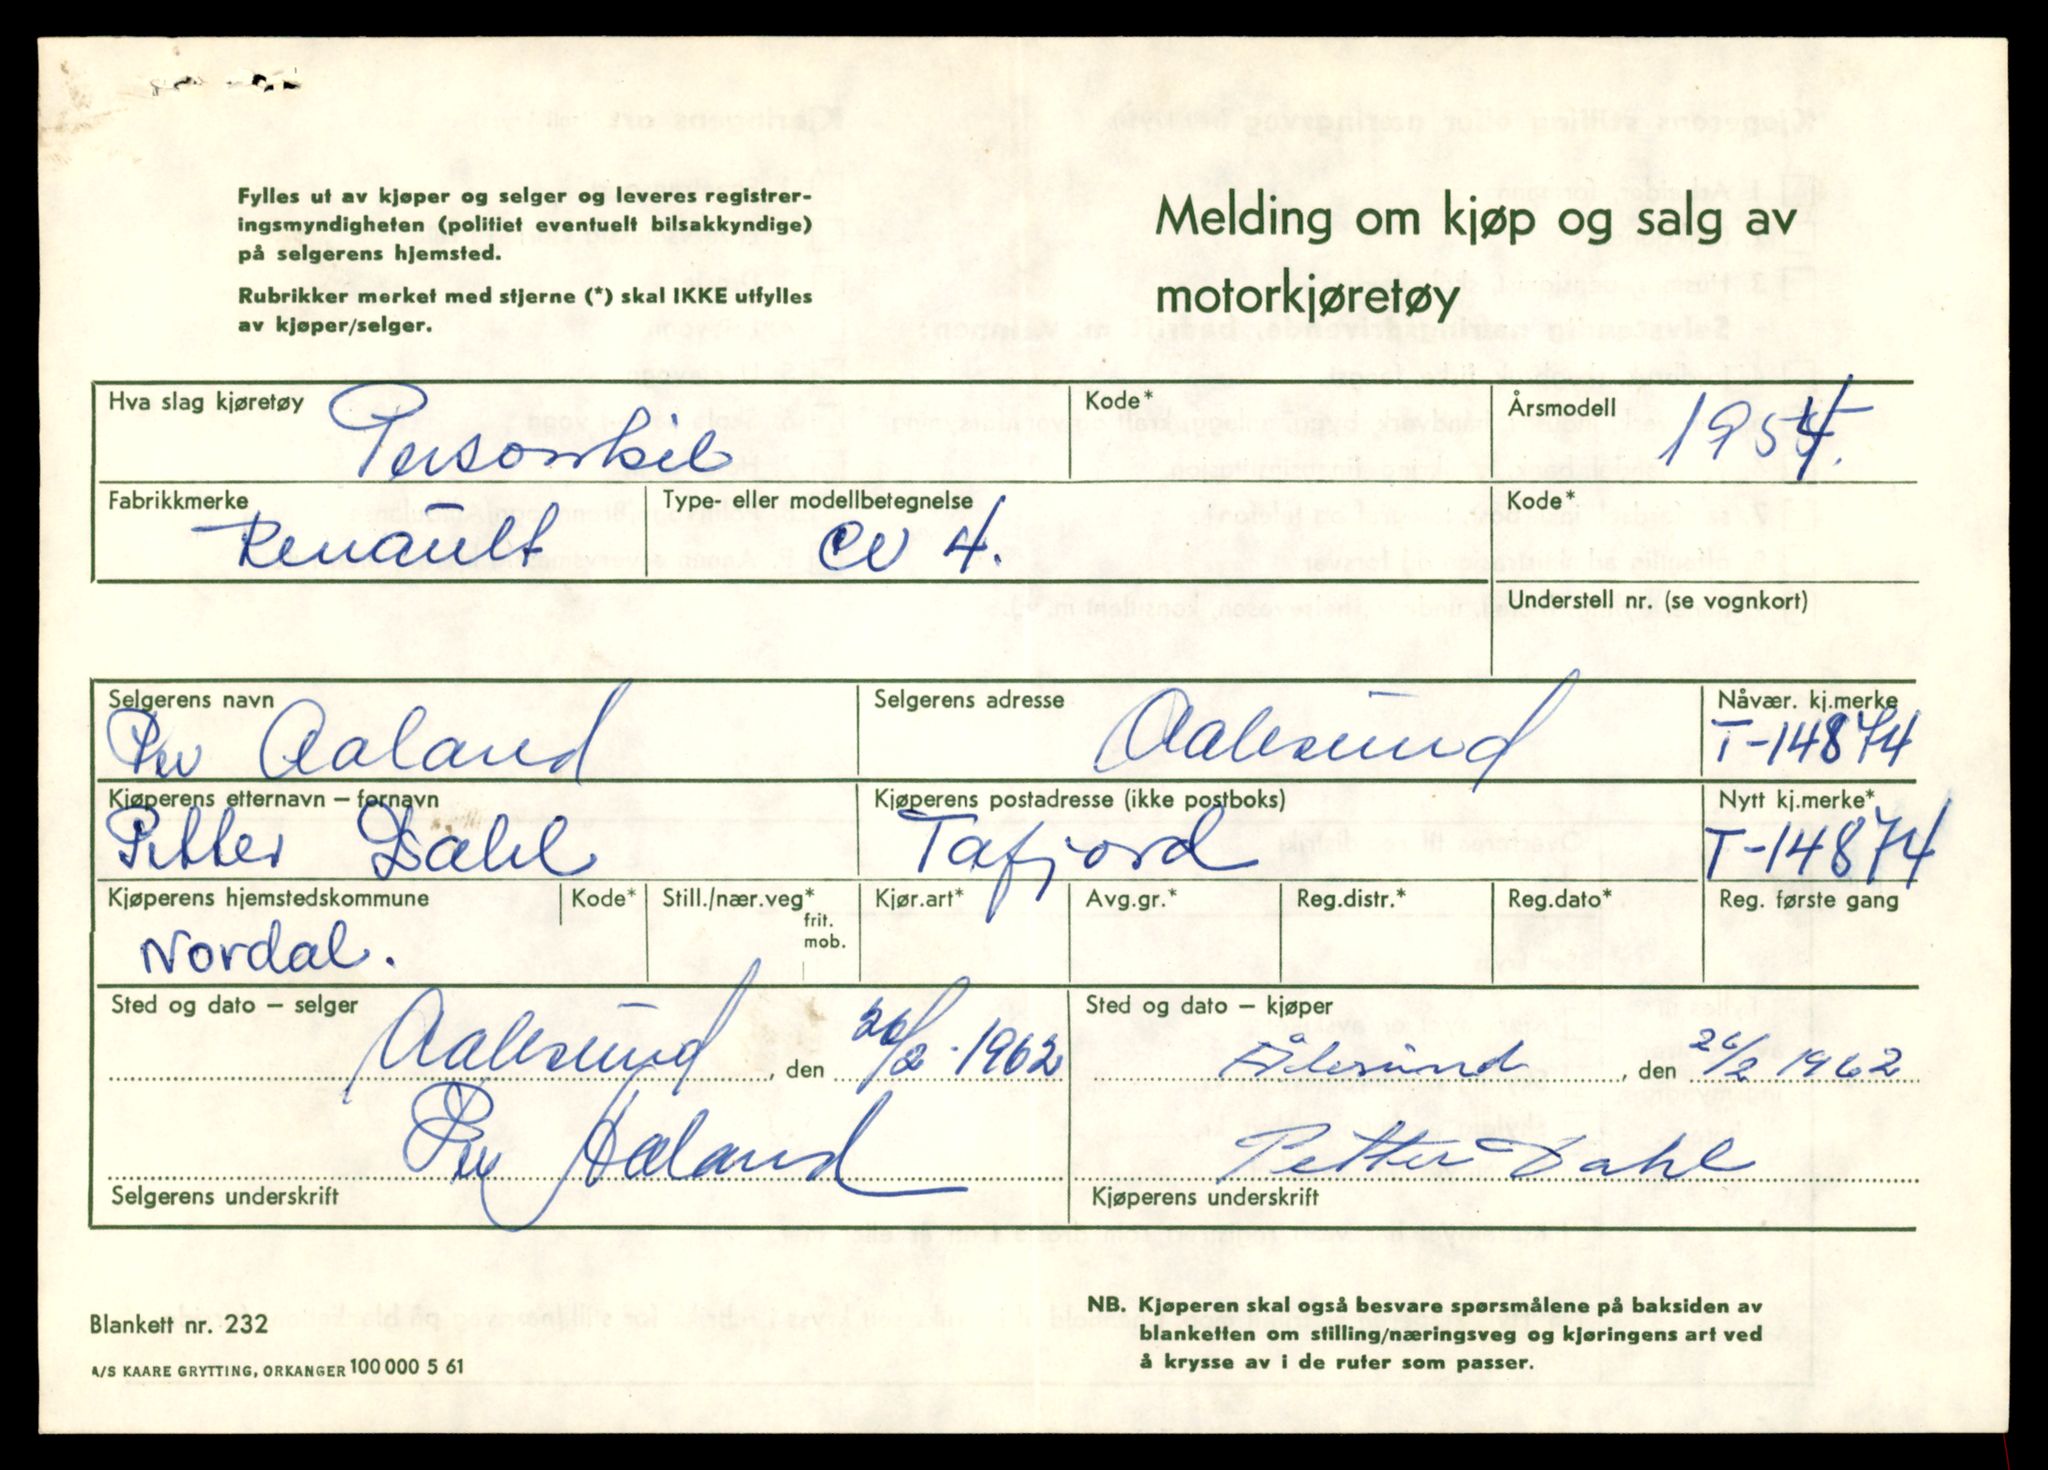 Fylles ut av kjøper og selger og leveres registrer-
ingsmyndigheten (politiet eventuelt bilsakkyndige)
på selgerens hjemsted.
Rubrikker merket med stjerne (*) skal IKKE utfylles
av kjøper/selger.
Melding om kjøp og salg av
motorkjøretøy
Hva slag kjøretøy Personbil
Kode*
Årsmodell 1954.
Fabrikkmerke Renault
Type- eller modellbetegnelse CV 4.
Kode*
Understell nr. (se vognkort)
Selgerens navn Per Aaland
Selgerens adresse Aalesund
Nåvær. kj.merke T-14874
Kjøperens etternavn – fornavn Petter Dahl
Kjøperens postadresse (ikke postboks) Tafjord
Nytt kj.merke* T-14874
Kjøperens hjemstedskommune Nordal.
Kode*
Still./nær.veg*
frit.
mob.
Kjør.art*
Avg.gr.*
Reg.distr.*
Reg.dato*
Reg. første gang
Sted og dato – selger
Aalesund, den 26/2-1962
Per Aaland
Selgerens underskrift
Sted og dato – kjøper
Ålesund, den 26/2 1962
Petter Dahl
Kjøperens underskrift
Blankett nr. 232
A/S KAARE GRYTTING, ORKANGER 100 000 5 61
NB. Kjøperen skal også besvare spørsmålene på baksiden av
blanketten om stilling/næringsveg og kjøringens art ved
å krysse av i de ruter som passer.